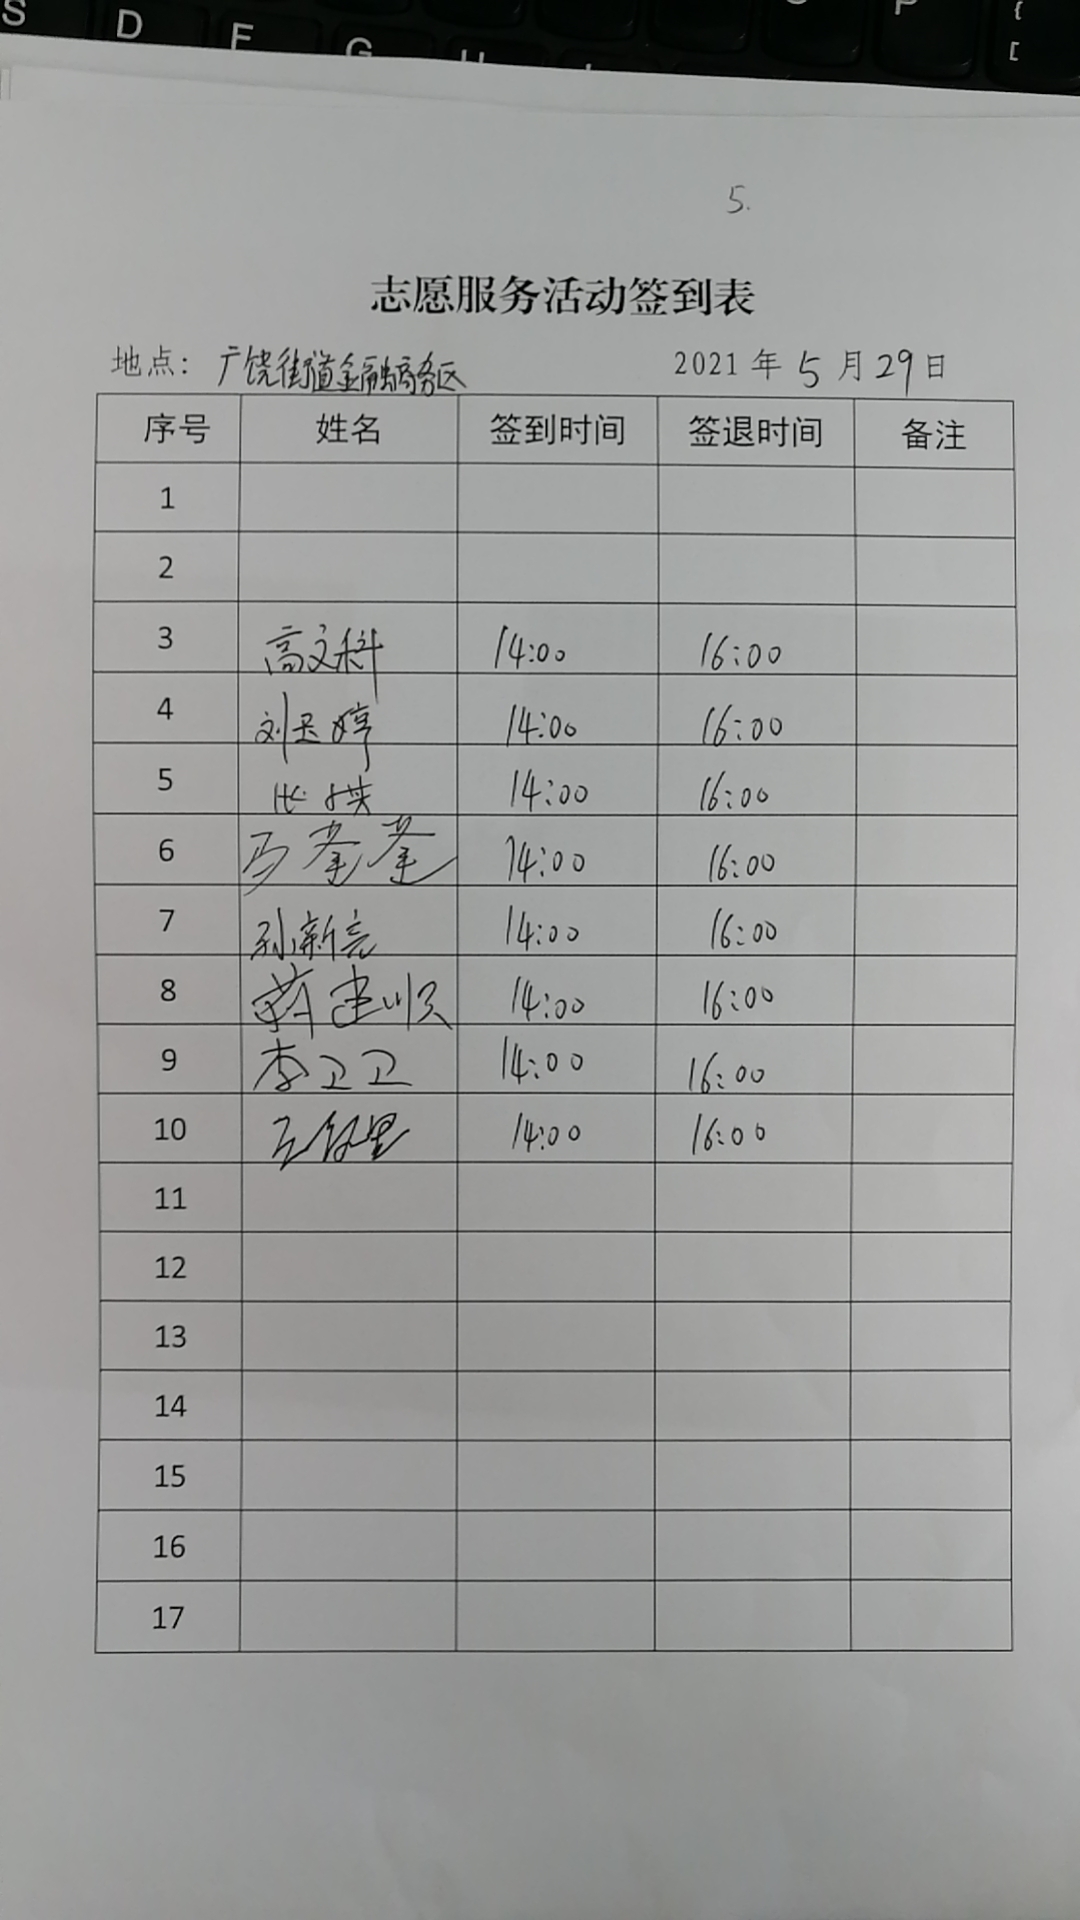 S D F G H P { [
5.
志愿服务活动签到表
地点: 广饶街道金融商务区 2021年5月29日
序号 姓名 签到时间 签退时间 备注
1
2
3 高文科 14:00 16:00
4 刘玉婷 14:00 16:00
5 14:00 16:00
6 马奎奎 14:00 16:00
7 孙新亮 14:00 16:00
8 蒋建顺 14:00 16:00
9 李卫卫 14:00 16:00
10 14:00 16:00
11
12
13
14
15
16
17